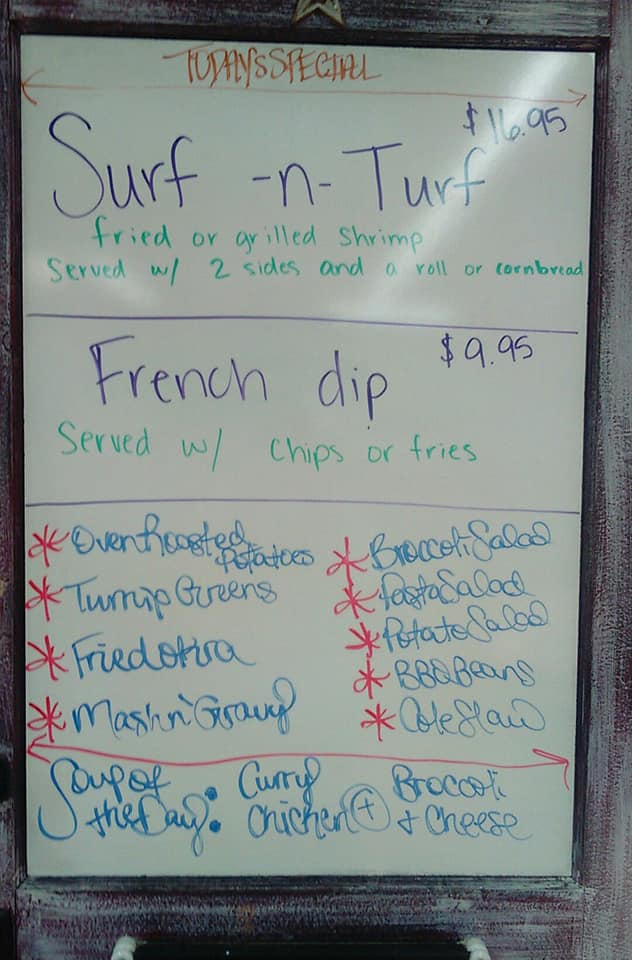 TODAY'S SPECIAL
$16.95
Surf -n- Turf
fried or grilled Shrimp
Served w/ 2 sides and a roll or cornbread
$9.95
French dip
Served w/ chips or fries
* Oven Roasted Potatoes
* Turnip Greens
* Fried Okra
* Mash n' Gravy
* Broccoli Salad
* Pasta Salad
* Potato Salad
* BBQ Beans
* Cole Slaw
Soup of the Day: Curry Chicken + Broccoli + Cheese